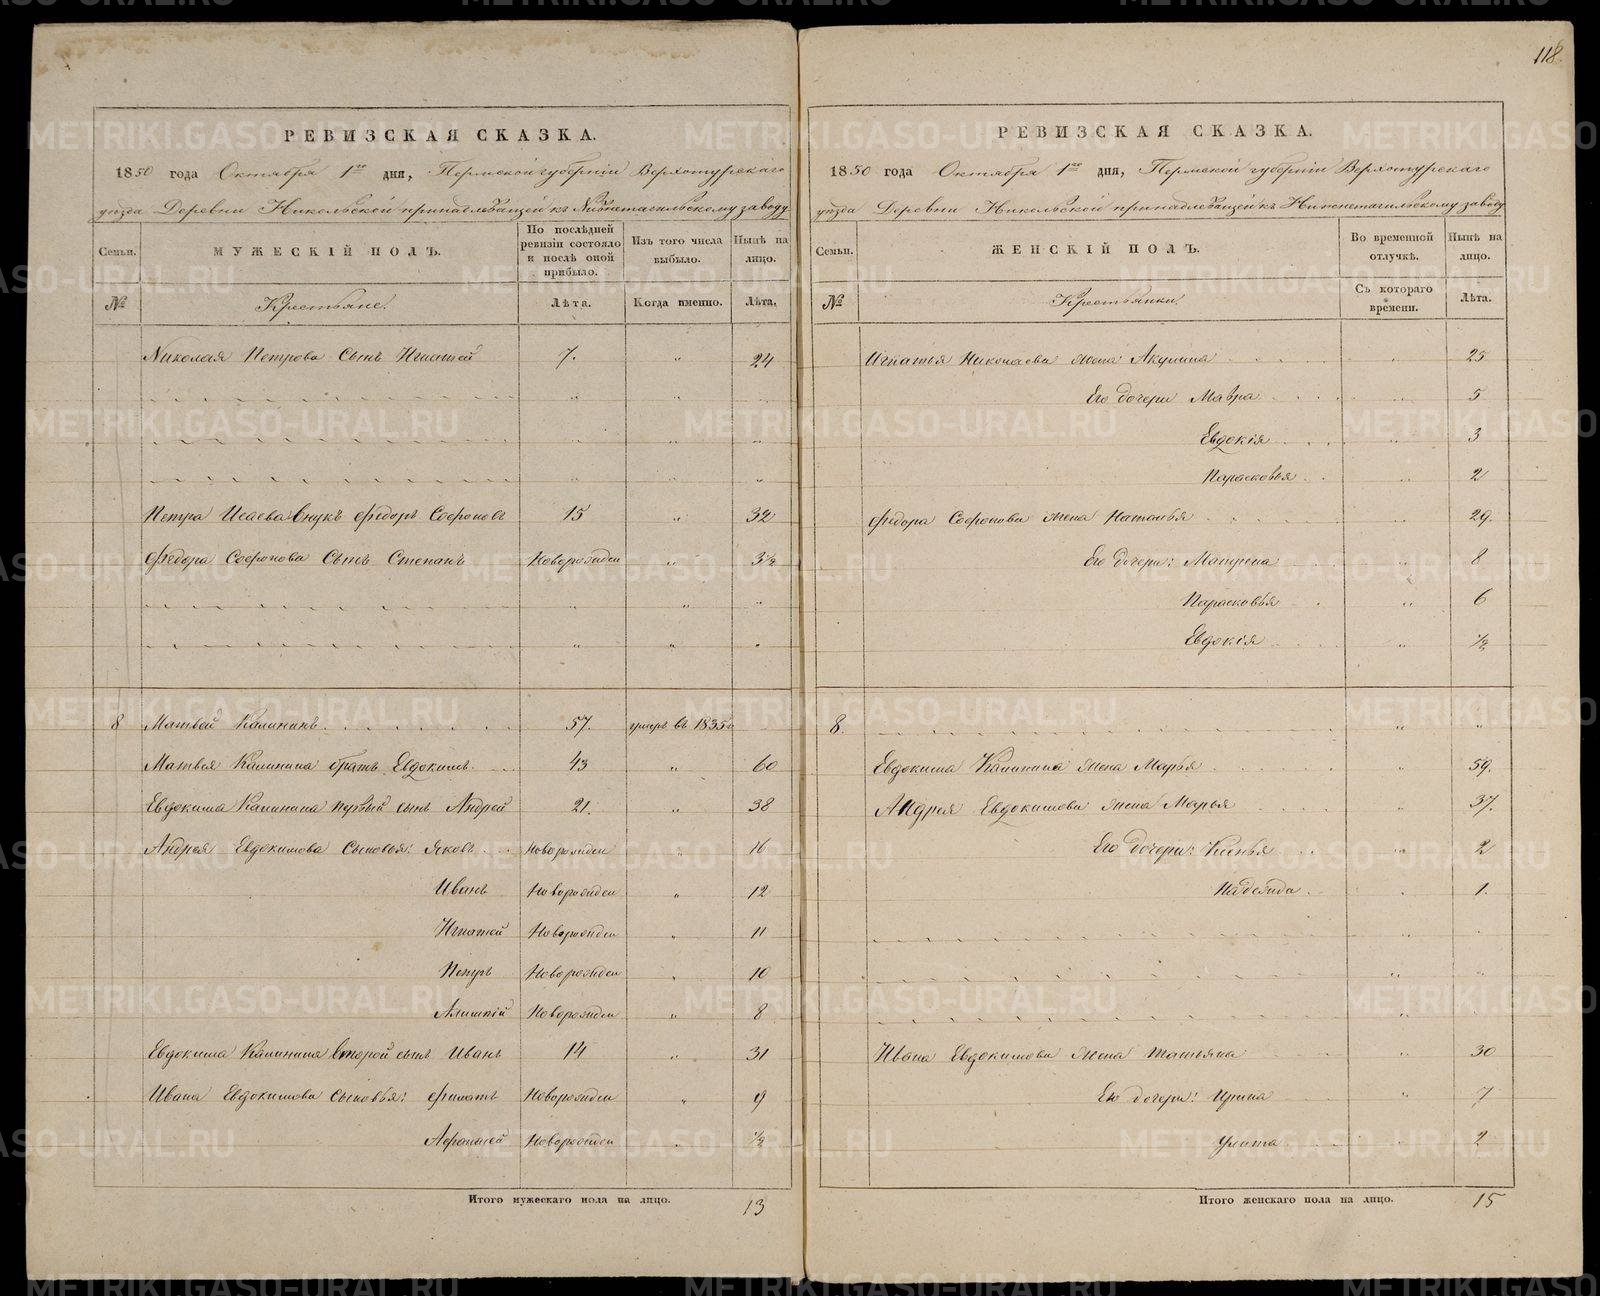 118
РЕВИЗСКАЯ СКАЗКА.
1850 года Октября 1го дня, Пермской губернiи Верхотурскаго
уѣзда Деревни Никольской принадлежащей къ Нижнетагильскому заводу
Семьи. МУЖЕСКІЙ ПОЛЪ. По послѣдней ревизіи состояло и послѣ оной прибыло. Изъ того числа выбыло. Нынѣ на лицо.
№ Крестьяне. Лѣта. Когда именно. Лѣта.
Николая Петрова сынъ Игнатей 7. " 24
Петра Исаева внукъ Федоръ Софоновъ 15 " 32
Федора Софонова сынъ Степанъ Новорожден " 3½
8 Матвей Калининъ 57. умеръ въ 1835
Матвея Калинина братъ Евдокимъ 43 " 60
Евдокима Калинина первый сынъ Андрей 21. " 38
Андрея Евдокимова сыновья: Яковъ Новорожден " 16
Иванъ Новорожден " 12
Игнатей Новорожден " 11
Петръ Новорожден " 10
Новорожден " 8
Евдокима Калинина второй сынъ Иванъ 14 " 31
Ивана Евдокимова сыновья: Филатъ Новорожден " 9
Афонасей Новорожден " ½
Итого мужескаго пола на лицо. 13
РЕВИЗСКАЯ СКАЗКА.
1850 года Октября 1го дня, Пермской губернiи Верхотурскаго
уѣзда Деревни Никольской принадлежащей къ Нижнетагильскому заводу
Семьи. ЖЕНСКІЙ ПОЛЪ. Во временной отлучкѣ. Нынѣ на лицо.
№ Крестьянки. Съ котораго времени. Лѣта.
Игнатья Николаева жена Акулина " 25
Его дочери Мавра " 5
Евдокія " 3
Парасковья " 2
Федора Софонова жена Наталья " 29.
Его дочери: Матрена " 8
Парасковья " 6
Евдокія " ½
8. " "
Евдокима Калинина жена Марья " 59.
Андрея Евдокимова жена Марья " 37.
Его дочери: Ксенья " 2
Надежда " 1.
Ивана Евдокимова жена Татьяна " 30
Его дочери: Ирина " 7
Улита " 2
Итого женскаго пола на лицо. 15
METRIKI.GASO-URAL.RU